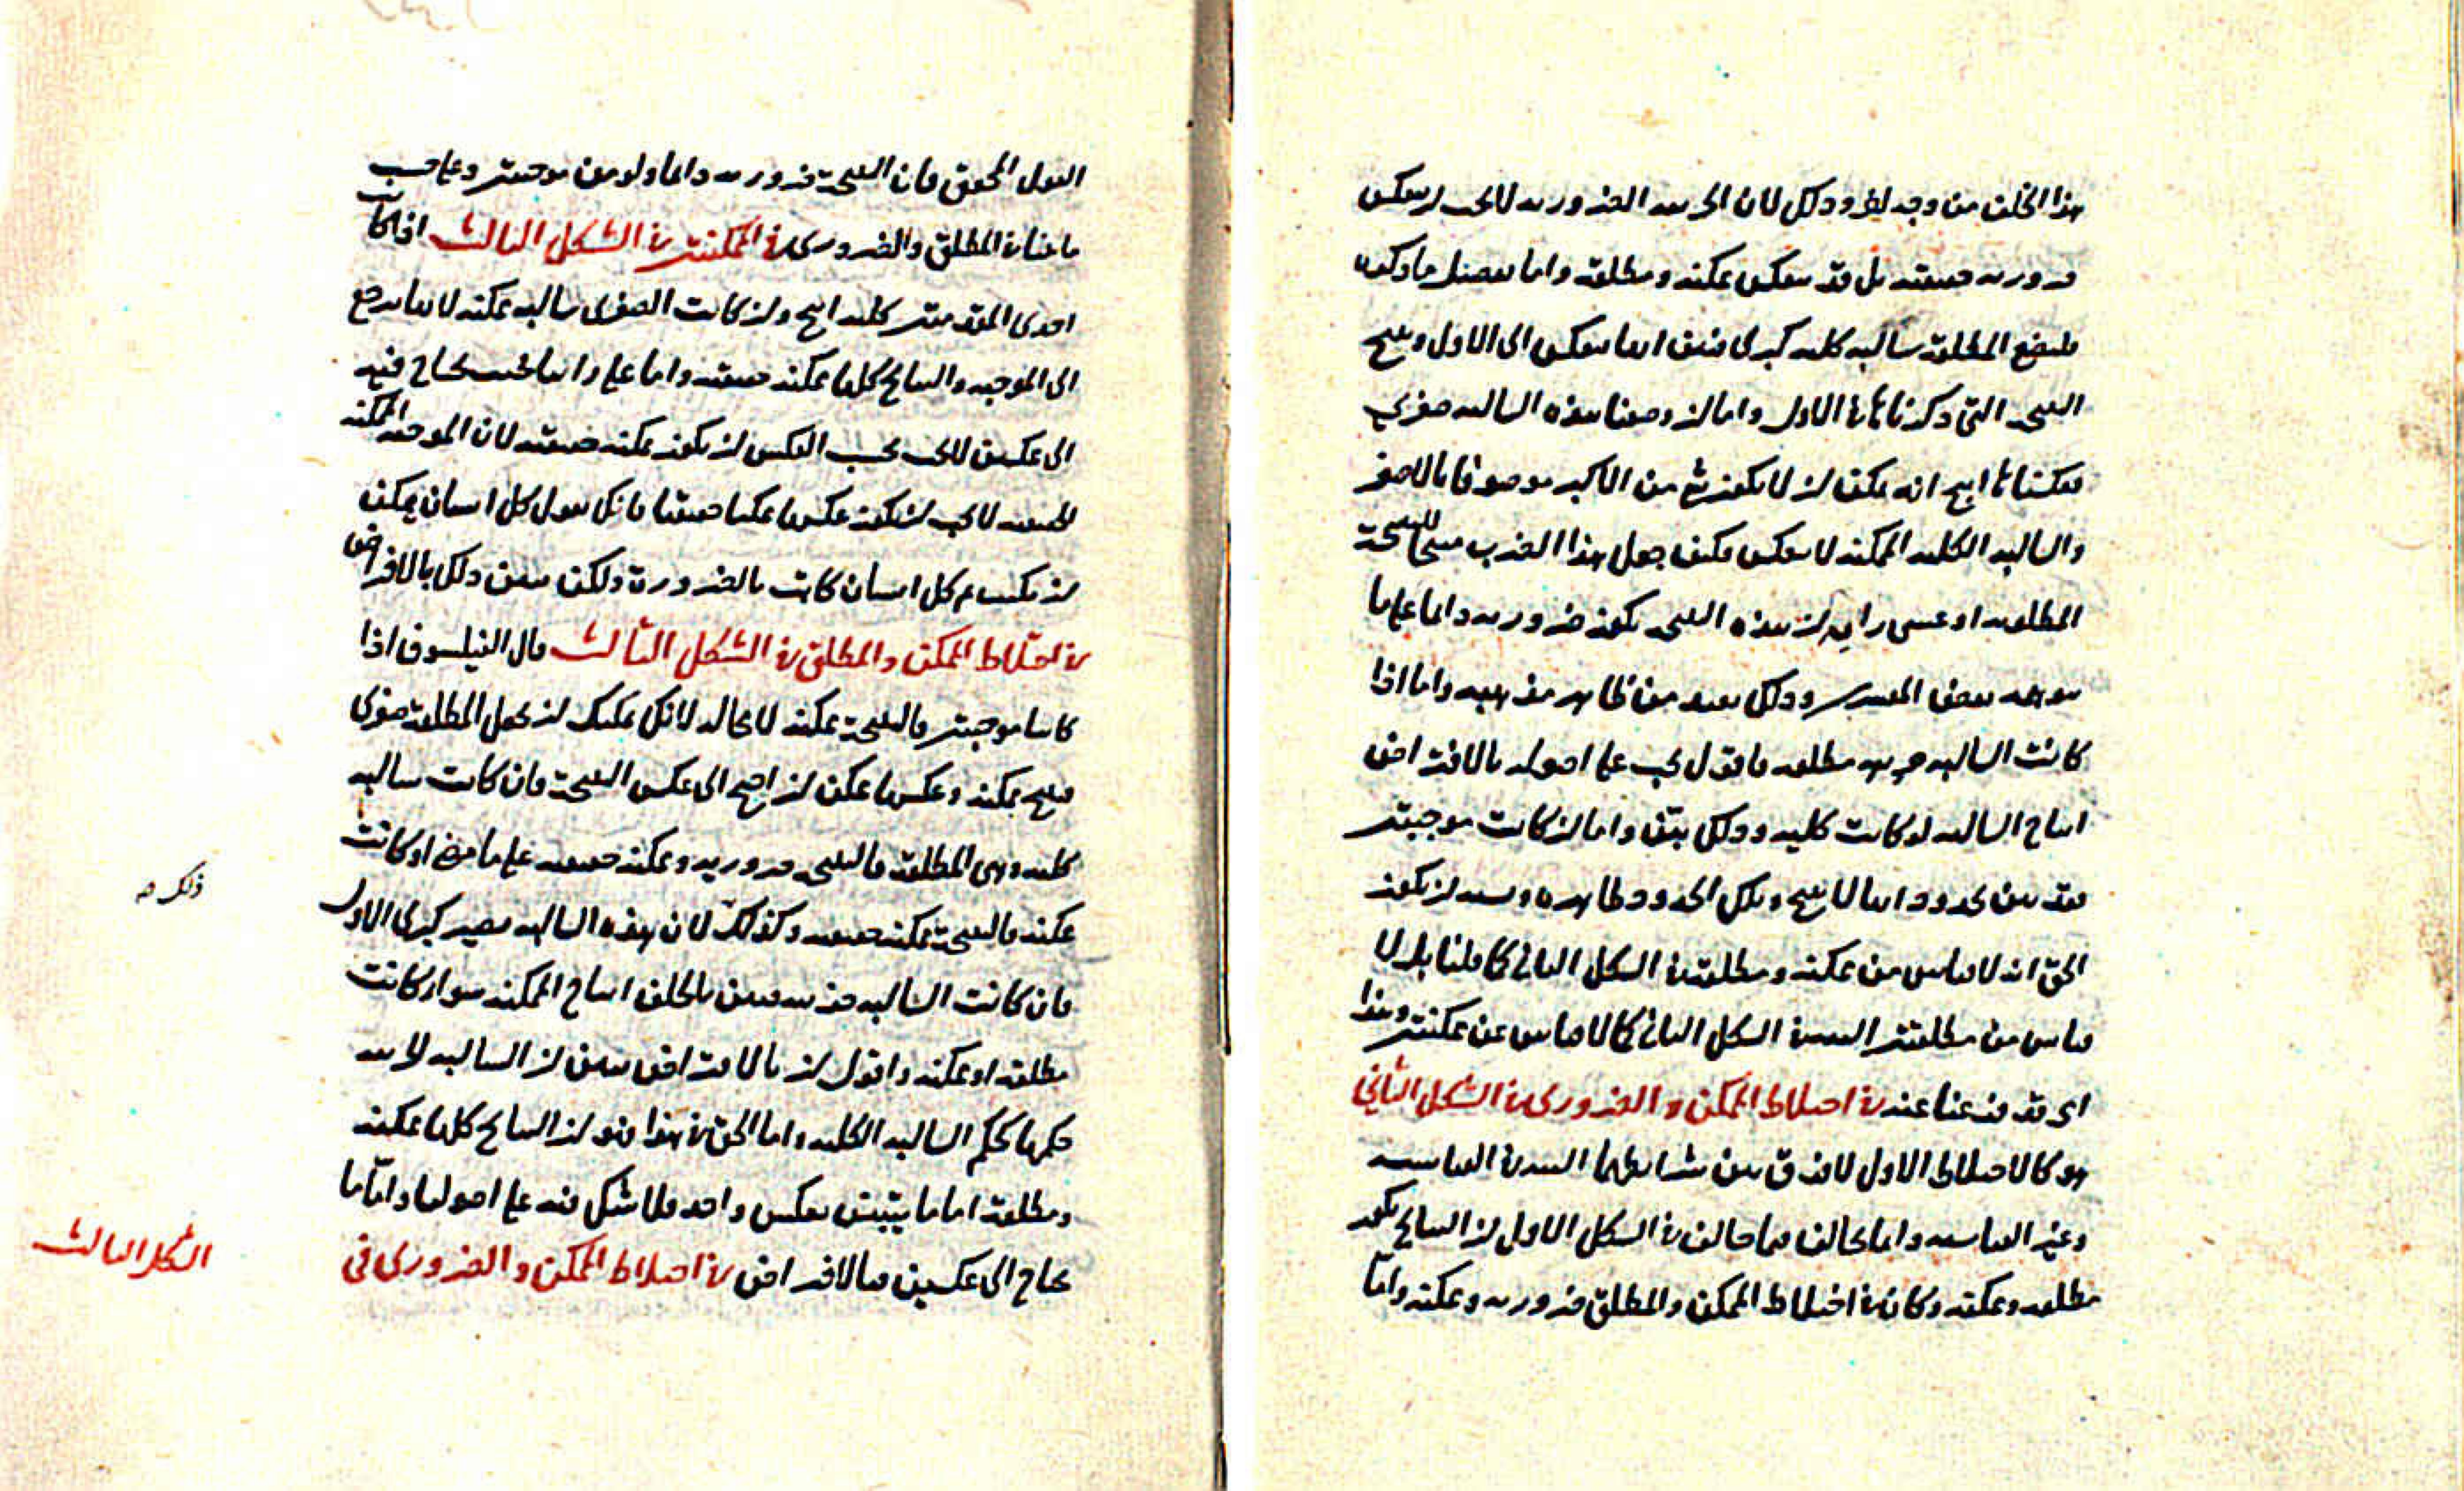 هذا الخلف من وجه اخر وذلك لان الجزييه الضروريه لا يجب ان ينعكس
ضروريه حقيقيه بل قد ينعكس ممكنه ومطلقه واما تفصيل ما ذكره
فلنضع المطلقة سالبه كليه كبرى فتبين انها ينعكس الى الاول وينتج
النتيجه التي ذكرناها في الاول واما ان وضعنا هذه السالبه صغرى
فعكسناها انتج انه يمكن ان لا يكون شئ من الاكبر موصوفا بالاصغر
والسالبه الكليه الممكنه لا ينعكس فكيف جعل هذا الضرب منتجا للنتيجة
المطلوبه او عسى رايه ان هذه النتيجه يكون ضروريه دائما على ما
توهمه بعض المفسرين وذلك بعيد من ظاهر مذهبه واما اذا
كانت السالبه جزييه مطلقه فاقول يجب على اصوله بالافتراض
انتاج السالبه لو كانت كليه وذلك بيّن واما ان كانت موجبتين
فقد بين بحدود انها لا ينتج وتلك الحدود ظاهره ويشبه ان يكون
الحق انه لا قياس من ممكنه ومطلقة في الشكل الثاني كما قلنا بل لا
قياس من مطلقتين البتة في الشكل الثاني كما لا قياس عن ممكنتين وهذا
اى قد فرغنا عنه في اختلاط الممكن والضرورى في الشكل الثاني
هو كالاختلاط الاول لا فرق بين شرايطهما البتة في القياسيه
وغير القياسيه وانما يخالف فيما خالف في الشكل الاول ان النتايج يكون
مطلقه وممكنه وكان في اختلاط الممكن والمطلق ضروريه وممكنه وامّا
القول المحقق فان النتيجة ضروريه دائما ولو من موجبتين وعلى حسب
ما قلنا في المطلق والضرورى في الممكنتين في الشكل الثالث اذا كانت
احدى المقدمتين كليه انتج وان كانت الصغرى سالبه ممكنه لانها يرجع
الى الموجبه والنتايج كلها ممكنه حقيقيه واما على راينا فحيث يحتاج فيه
الى عكسين لا يجب بحسب العكس ان يكون ممكنه حقيقيه لان الموجبه الممكنه
الحقيقيه لا يجب ان يكون عكسها ممكنا حقيقيا فانك تقول كل انسان يمكن
ان يكتب ثم كل انسان كاتب بالضرورة ولكن يبين ذلك بالافتراض
في اختلاط الممكن والمطلق في الشكل الثالث قال الفيلسوف اذا
كانتا موجبتين فالنتيجة ممكنه لا محاله لانك يمكنك ان تجعل المطلقة صغرى
فينتج ممكنه وعكسها ممكن ان احتج الى عكس النتيجة فان كانت سالبه
كليه وهى المطلقة فالنتيجه ضروريه وممكنه حقيقيه على ما مضى او كانت
ممكنه فالنتيجة ممكنه حقيقيه وكذلك لان هذه السالبه يصير كبرى الاول
فان كانت السالبه جزييه تبين بالخلف انتاج الممكنه سواء كانت
مطلقه او ممكنه واقول ان بالافتراض يبين ان السالبه الجزييه
حكمها حكم السالبه الكليه واما الحق في هذا فهو ان النتايج كلها ممكنه
ومطلقة اما ما يتبين بعكس واحد فلا شك فيه على اصولنا وامّا ما
يحتاج الى عكسين فبالافتراض في اختلاط الممكن والضرورى في
ذلك صه
الشكل الثالث